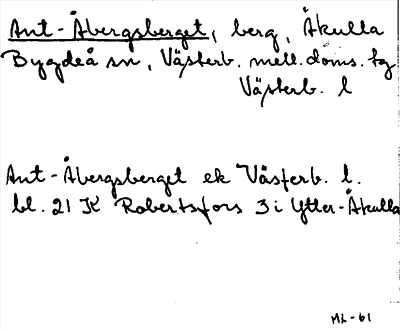 Ant-Åbergsberget, berg, Åkulla
Bygdeå sn, Västerb. mell. doms. tg.
Västerb. l
Ant-Åbergsberget ek Västerb. l.
bl. 21 K Robertsfors 3 i Ytter-Åkulla
ML-61